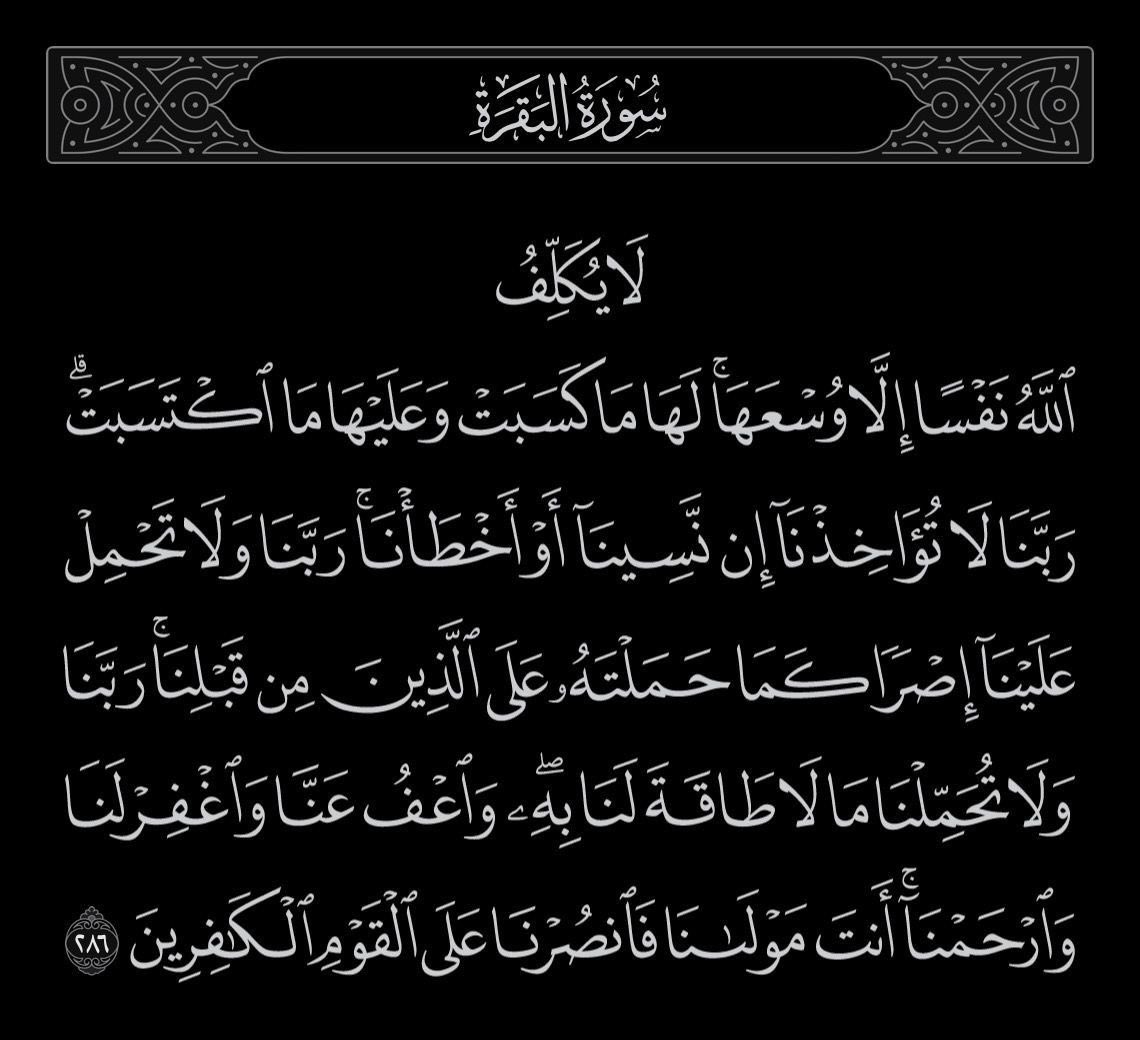 سُورَةُ البَقَرَةِ
لَا يُكَلِّفُ
ٱللَّهُ نَفۡسًا إِلَّا وُسۡعَهَاۚ لَهَا مَا كَسَبَتۡ وَعَلَيۡهَا مَا ٱكۡتَسَبَتۡۗ
رَبَّنَا لَا تُؤَاخِذۡنَآ إِن نَّسِينَآ أَوۡ أَخۡطَأۡنَاۚ رَبَّنَا وَلَا تَحۡمِلۡ
عَلَيۡنَآ إِصۡرٗا كَمَا حَمَلۡتَهُۥ عَلَى ٱلَّذِينَ مِن قَبۡلِنَاۚ رَبَّنَا
وَلَا تُحَمِّلۡنَا مَا لَا طَاقَةَ لَنَا بِهِۦۖ وَٱعۡفُ عَنَّا وَٱغۡفِرۡ لَنَا
وَٱرۡحَمۡنَآۚ أَنتَ مَوۡلَىٰنَا فَٱنصُرۡنَا عَلَى ٱلۡقَوۡمِ ٱلۡكَٰفِرِينَ ٢٨٦